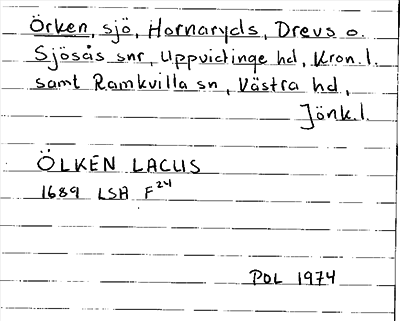 Örken, sjö, Hornaryds, Drevs o.
Sjösås snr, Uppvidinge hd, Kron.l.
samt Ramkvilla sn, Västra hd,
Jönk.l.
ÖLKEN LACUS
1689 LSA F24
PDL 1974